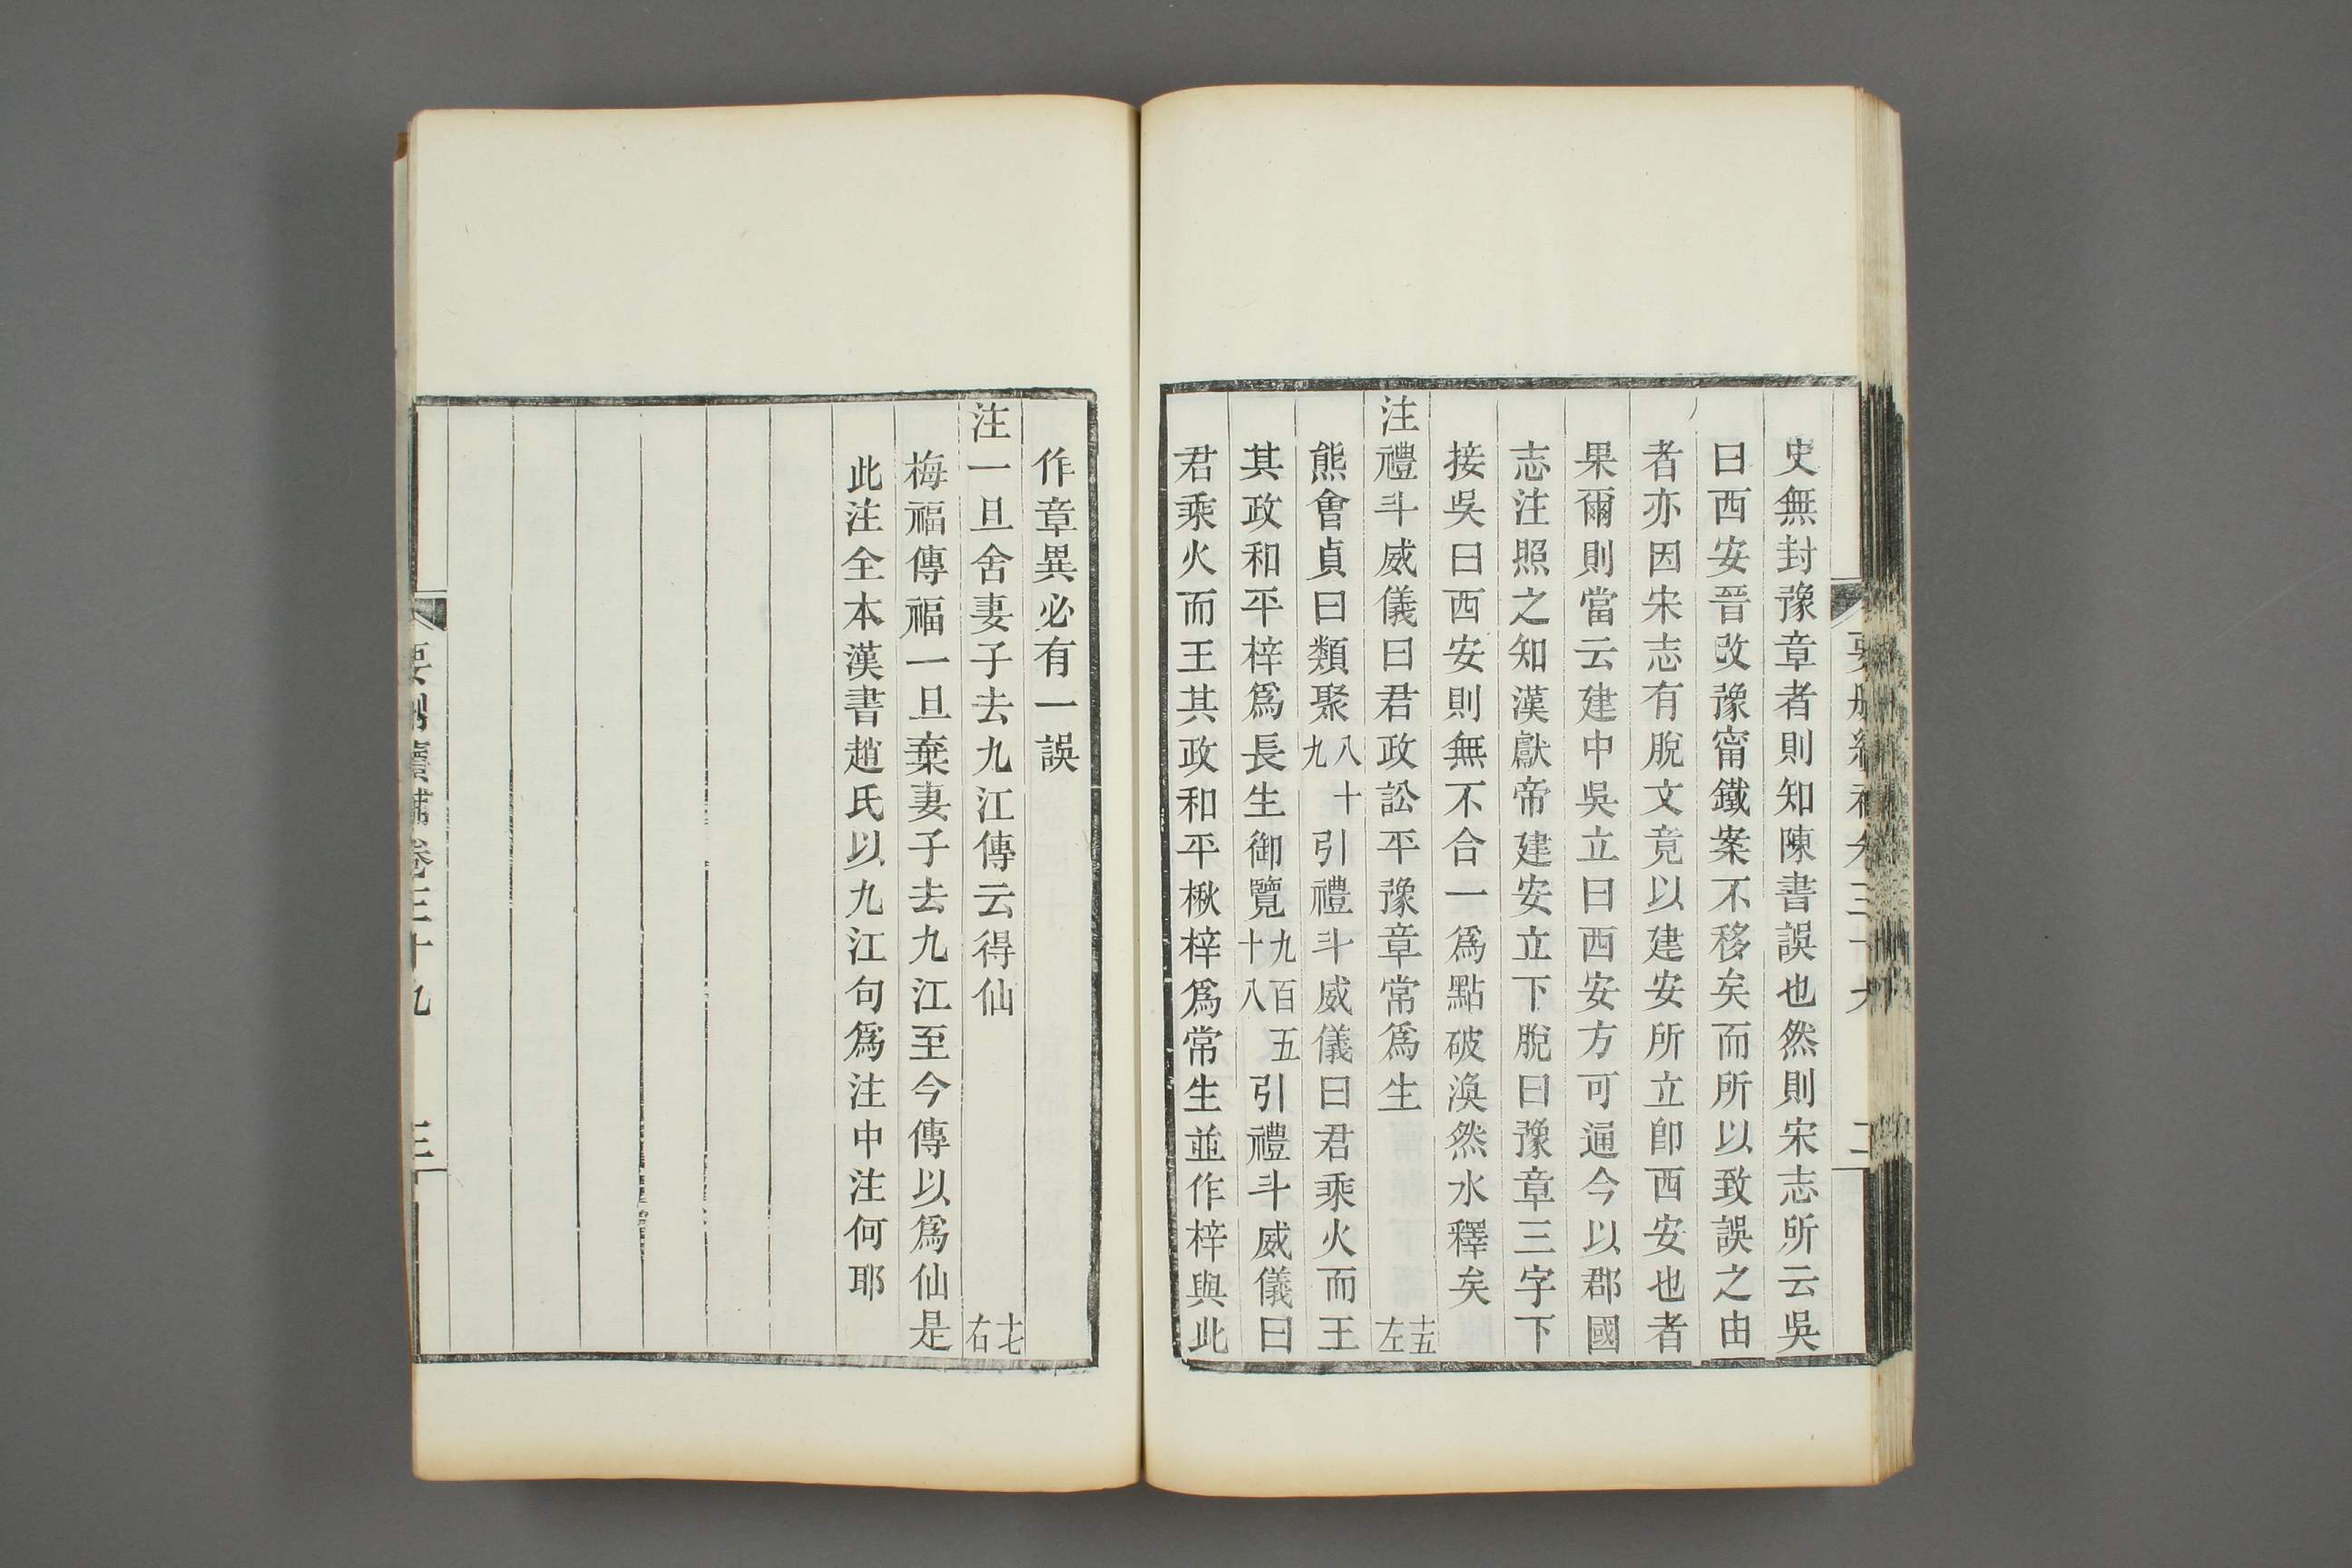 史無封豫章者則知陳書誤也然則宋志所云吳
曰西安晉改豫甯鐵案不移矣而所以致誤之由
者亦因宋志有脫文竟以建安所立卽西安也者
果爾則當云建中吳立曰西安方可通今以郡國
志注照之知漢獻帝建安立下脫曰豫章三字下
接吳曰西安則無不合一爲點破渙然水釋矣
注禮斗威儀曰君政訟平豫章常爲生 十五左
熊會貞曰類聚八十九引禮斗威儀曰君乘火而王
其政和平梓爲長生御覽九百五十八引禮斗威儀曰
君乘火而王其政和平楸梓爲常生並作梓與此
作章異必有一誤
注一旦舍妻子去九江傳云得仙 十七右
梅福傳福一旦棄妻子去九江至今傳以爲仙是
此注全本漢書趙氏以九江句爲注中注何耶
要刪續補卷三十九 三